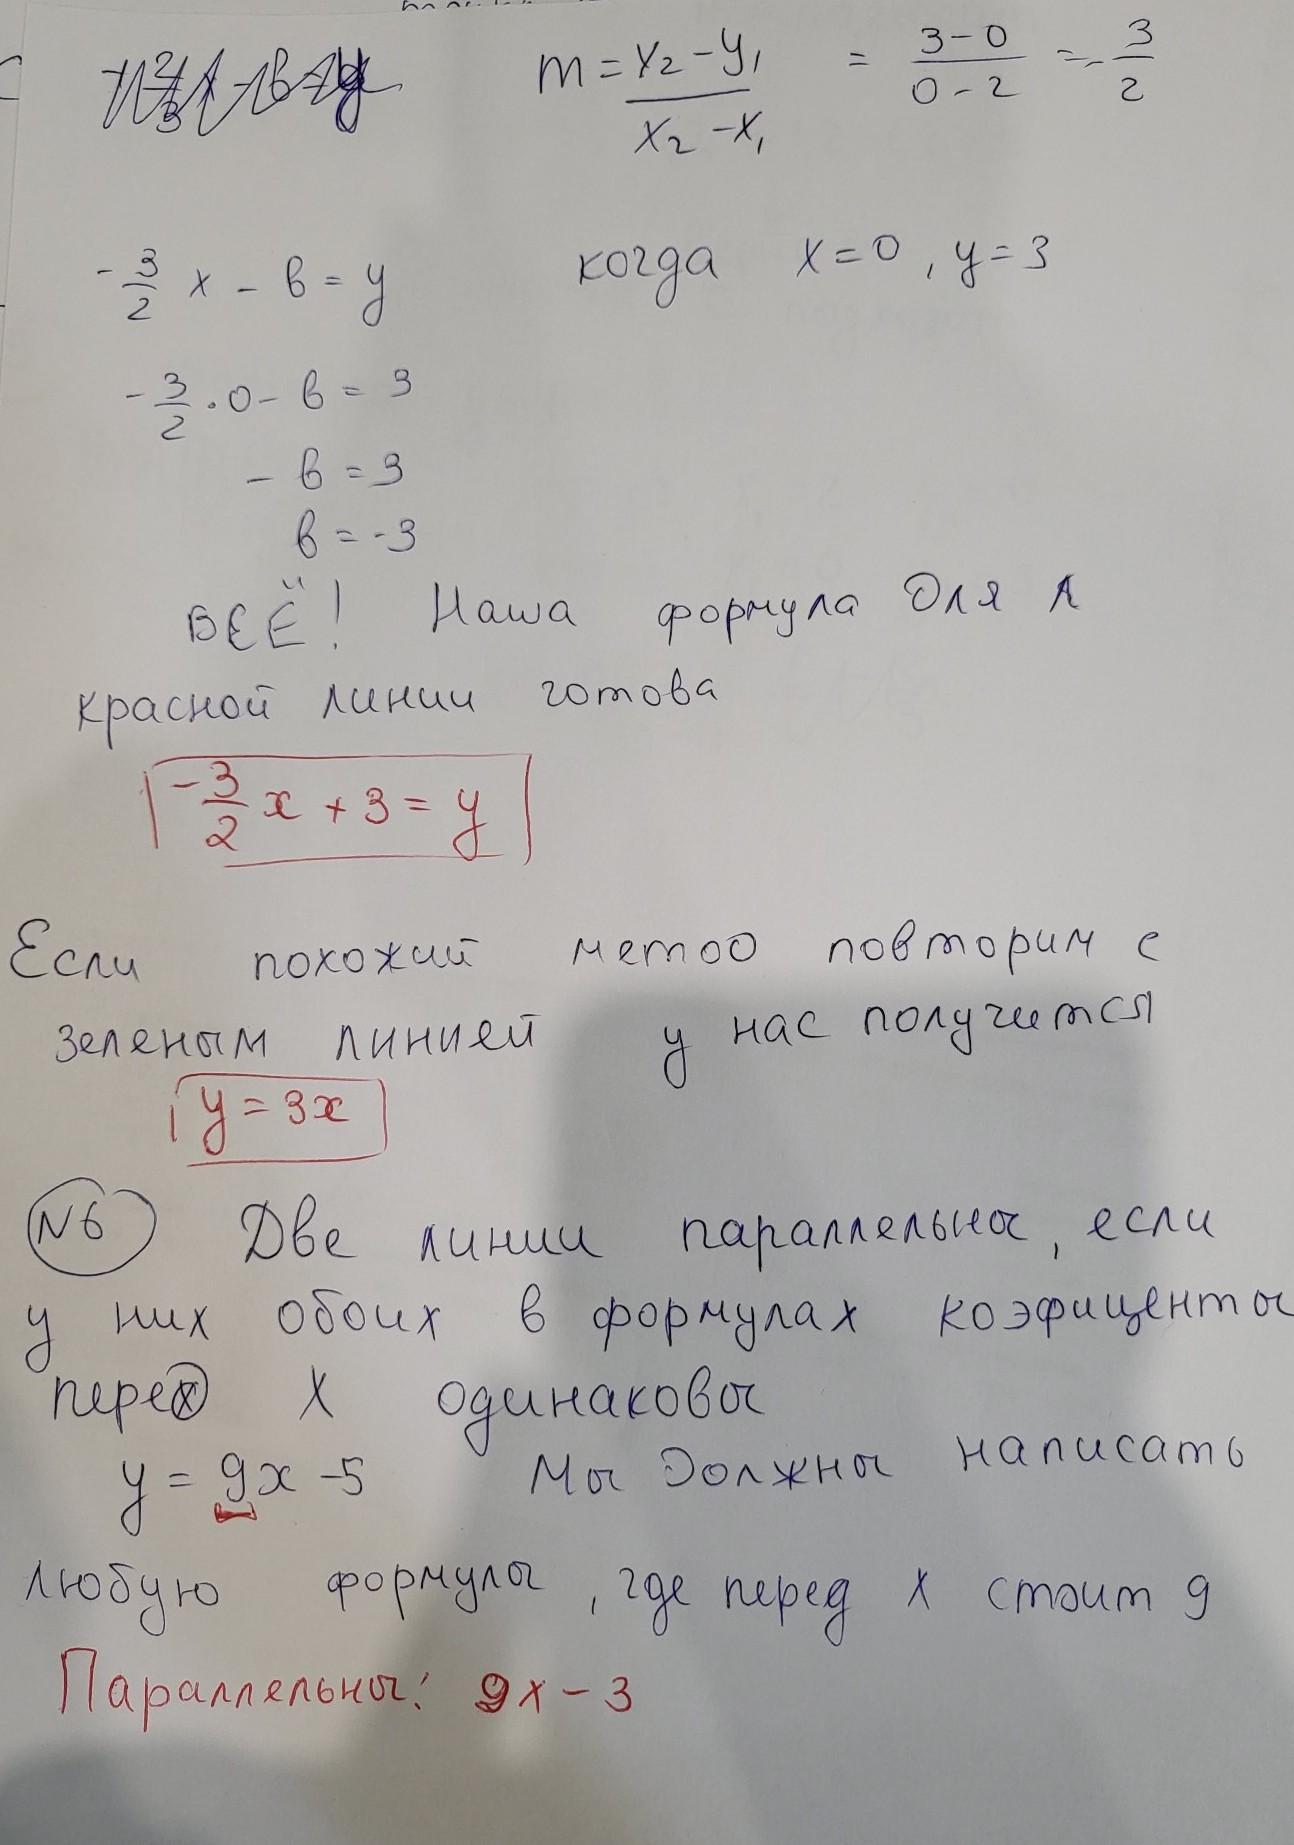 m = y₂ - y₁ / x₂ - x₁ = 3 - 0 / 0 - 2 = - 3/2
- 3/2 x - в = y когда x = 0, y = 3
- 3/2 · 0 - в = 3
- в = 3
в = -3
ВСЁ! Наша формула для
красной линии готова
- 3/2 x + 3 = y
Если похожий метод повторим с
зеленым линией у нас получится
y = 3x
N6 Две линии параллельны, если
у них обоих в формулах коэфиценты
перед X одинаковы
y = 9x - 5 Мы должны написать
любую формулы, где перед x стоит 9
Параллельны: 9x - 3